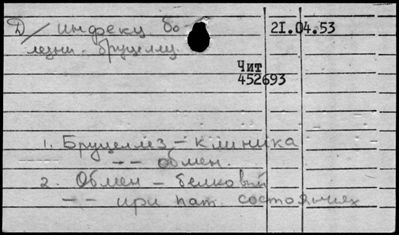 Д/ инфекц бо- 21.04.53
лезни. бруцеллу.
Чит
452693
1. Бруцеллёз – клиника
-- обмен.
2. Обмен – белковый
-- при пат. состояниях